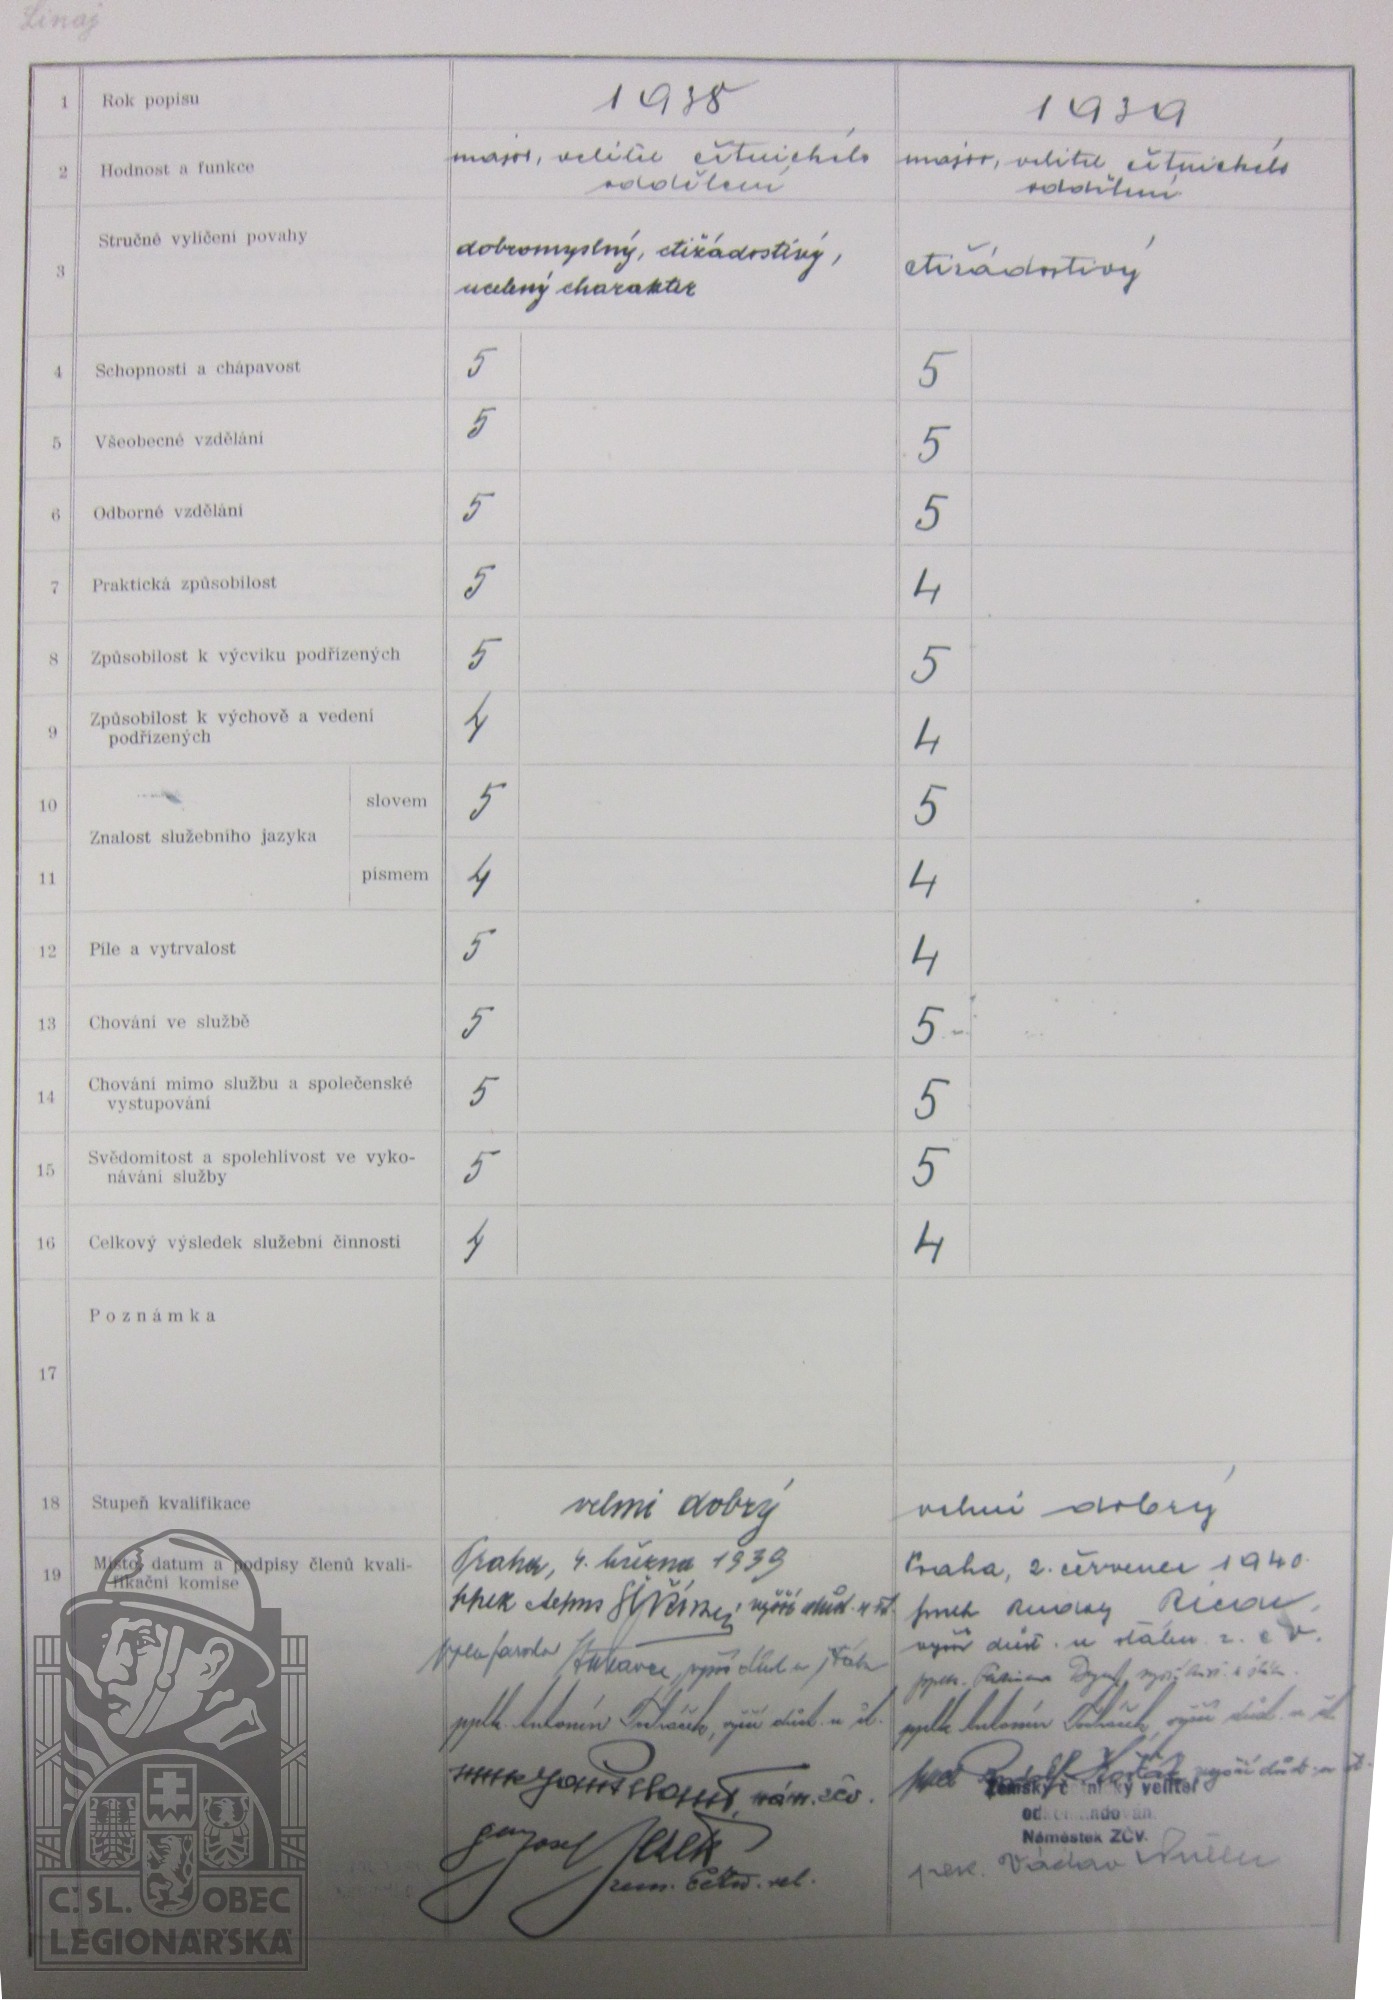 Linaj
1 Rok popisu 1938 1939
2 Hodnost a funkce major, velitel četnického major, velitel četnického
oddělení oddělení
3 Stručné vylíčení povahy dobromyslný, ctižádostivý, ctižádostivý
ucelený charakter
4 Schopnosti a chápavost 5 5
5 Všeobecné vzdělání 5 5
6 Odborné vzdělání 5 5
7 Praktická způsobilost 5 4
8 Způsobilost k výcviku podřízených 5 5
9 Způsobilost k výchově a vedení
podřízených 4 4
10 slovem 5 5
Znalost služebního jazyka
11 písmem 4 4
12 Píle a vytrvalost 5 4
13 Chování ve službě 5 5
14 Chování mimo službu a společenské
vystupování 5 5
15 Svědomitost a spolehlivost ve vyko-
návání služby 5 5
16 Celkový výsledek služební činnosti 4 4
17 Poznámka
18 Stupeň kvalifikace velmi dobrý velmi dobrý
19 Místo, datum a podpisy členů kvali-
fikační komise
Praha, 4. března 1939 Praha, 2. červenec 1940.
vyšší důst. u
vyšší důst. u štábu z. č. v.
vyšší důst. u štáb
pplk. Antonín vyšší důst. u št. pplk. Antonín vyšší důst. u št.
nám. zčv. vyšší důst. u št.
Zemský č ni ký velitel
od ndován
Náměstek ZČV.
gen Josef Ježek plk. Václav
zem. četn. vel.
Č.SL. OBEC
LEGIONÁŘSKÁ